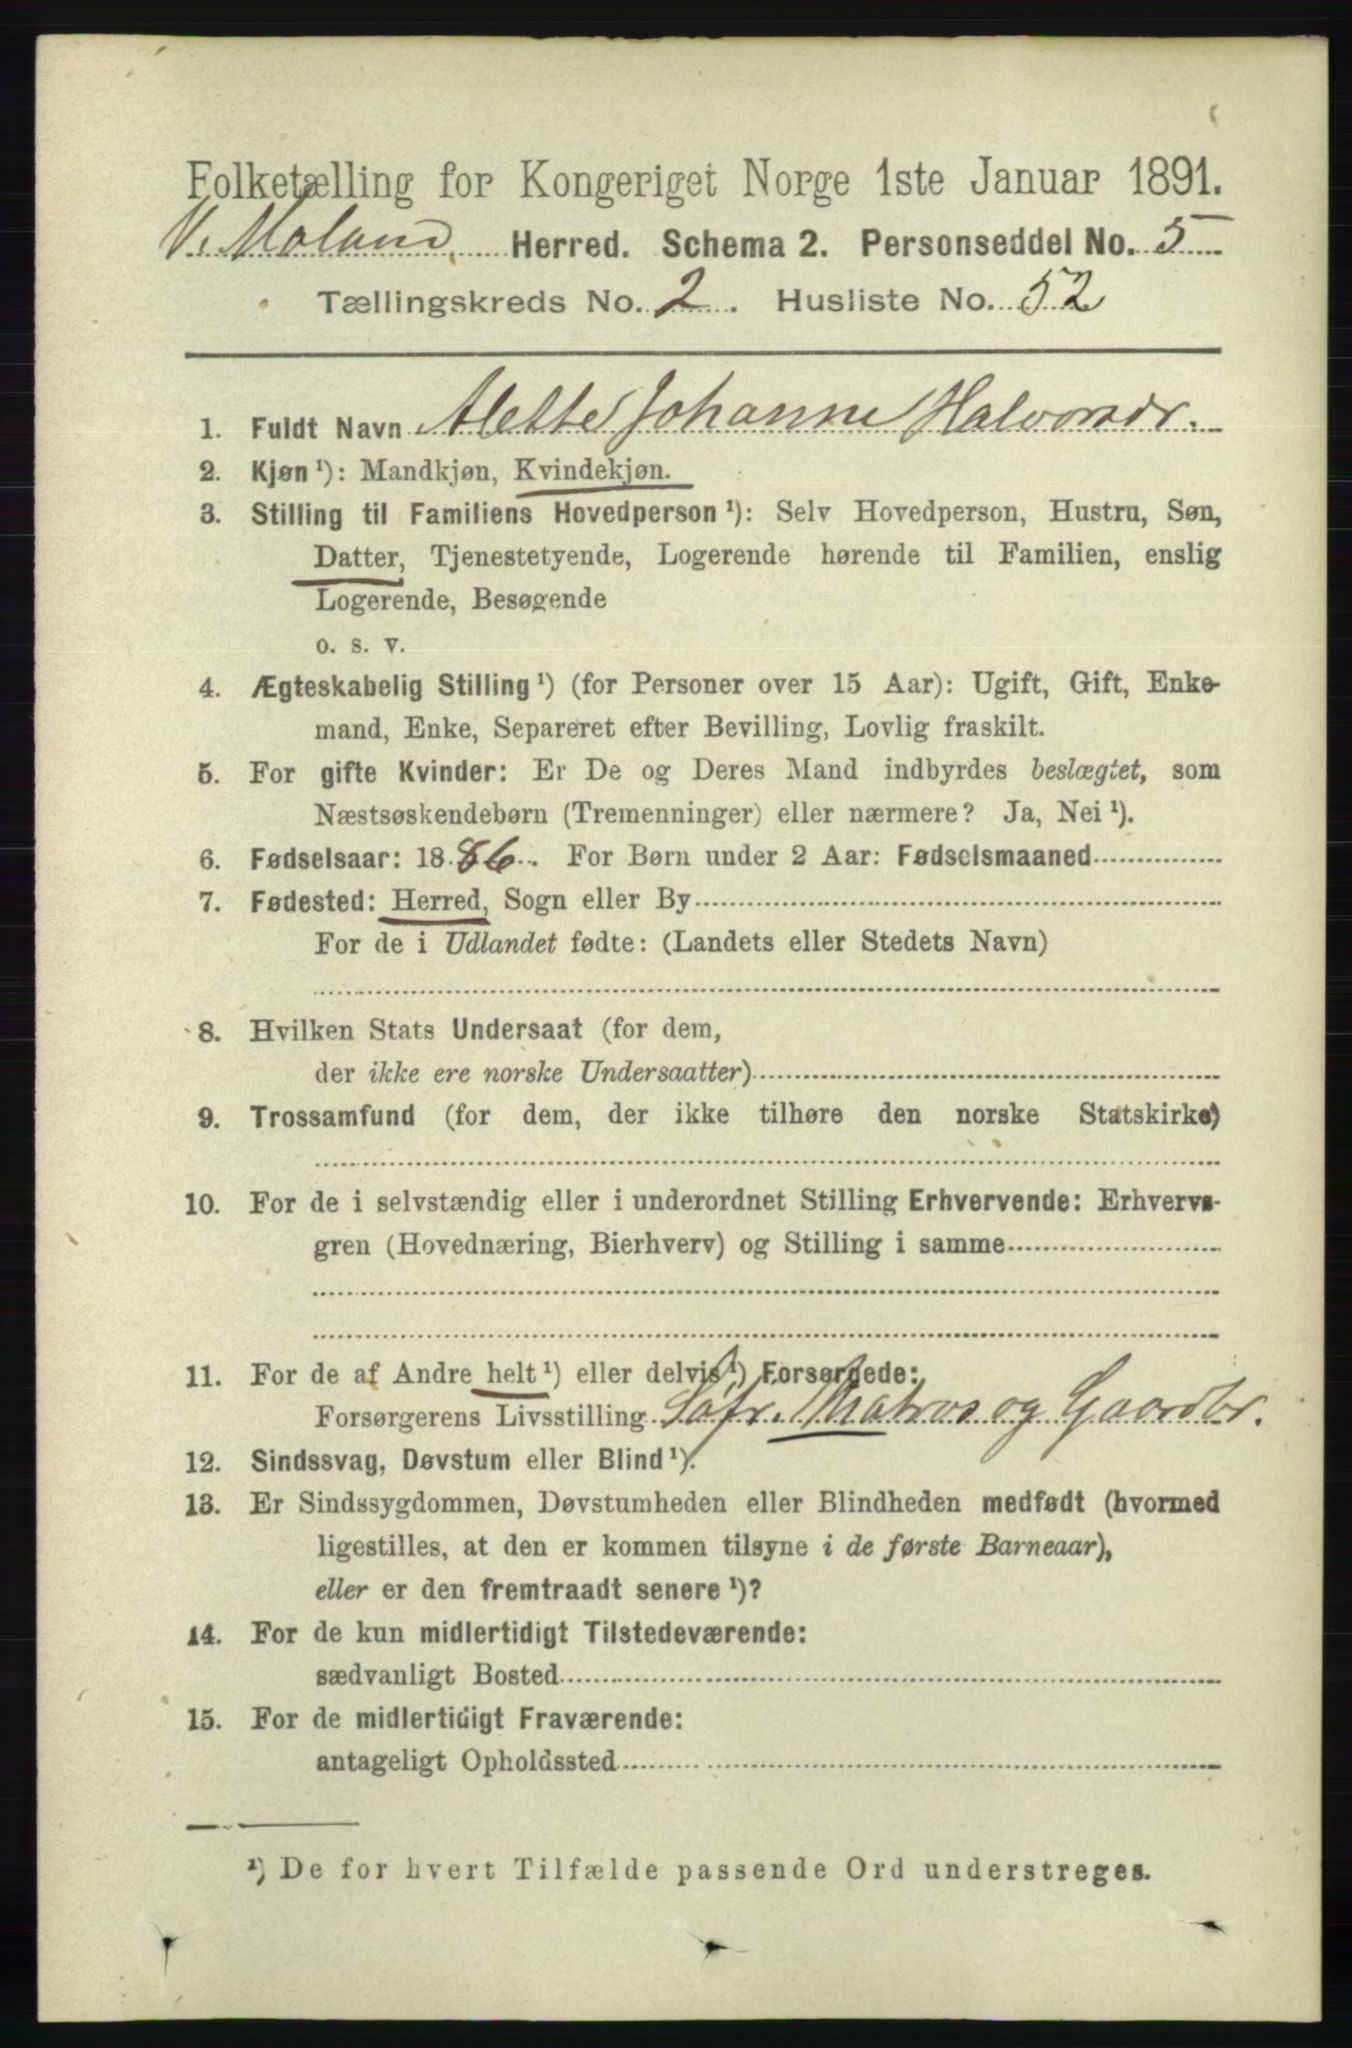 Folketælling for Kongeriget Norge 1ste Januar 1891.
V. Moland Herred. Schema 2. Personseddel No. 5
Tællingskreds No. 2. Husliste No. 52
1. Fuldt Navn Alette Johanne Halvorsdr.
2. Kjøn ¹): Mandkjøn, Kvindekjøn.
3. Stilling til Familiens Hovedperson ¹): Selv Hovedperson, Hustru, Søn,
Datter, Tjenestetyende, Logerende hørende til Familien, enslig
Logerende, Besøgende
o. s. v.
4. Ægteskabelig Stilling ¹) (for Personer over 15 Aar): Ugift, Gift, Enke-
mand, Enke, Separeret efter Bevilling, Lovlig fraskilt.
5. For gifte Kvinder: Er De og Deres Mand indbyrdes beslægtet, som
Næstsøskendebørn (Tremenninger) eller nærmere? Ja, Nei ¹).
6. Fødselsaar: 1886. For Børn under 2 Aar: Fødselsmaaned
7. Fødested: Herred, Sogn eller By
For de i Udlandet fødte: (Landets eller Stedets Navn)
8. Hvilken Stats Undersaat (for dem,
der ikke ere norske Undersaatter)
9. Trossamfund (for dem, der ikke tilhøre den norske Statskirke)
10. For de i selvstændig eller i underordnet Stilling Erhvervende: Erhvervs-
gren (Hovednæring, Bierhverv) og Stilling i samme
11. For de af Andre helt ¹) eller delvis ¹) Forsørgede:
Forsørgerens Livsstilling Søfr. Matros og Gaardbr.
12. Sindssvag, Døvstum eller Blind ¹).
13. Er Sindssygdommen, Døvstumheden eller Blindheden medfødt (hvormed
ligestilles, at den er kommen tilsyne i de første Barneaar),
eller er den fremtraadt senere ¹)?
14. For de kun midlertidigt Tilstedeværende:
sædvanligt Bosted
15. For de midlertidigt Fraværende:
antageligt Opholdssted
¹) De for hvert Tilfælde passende Ord understreges.